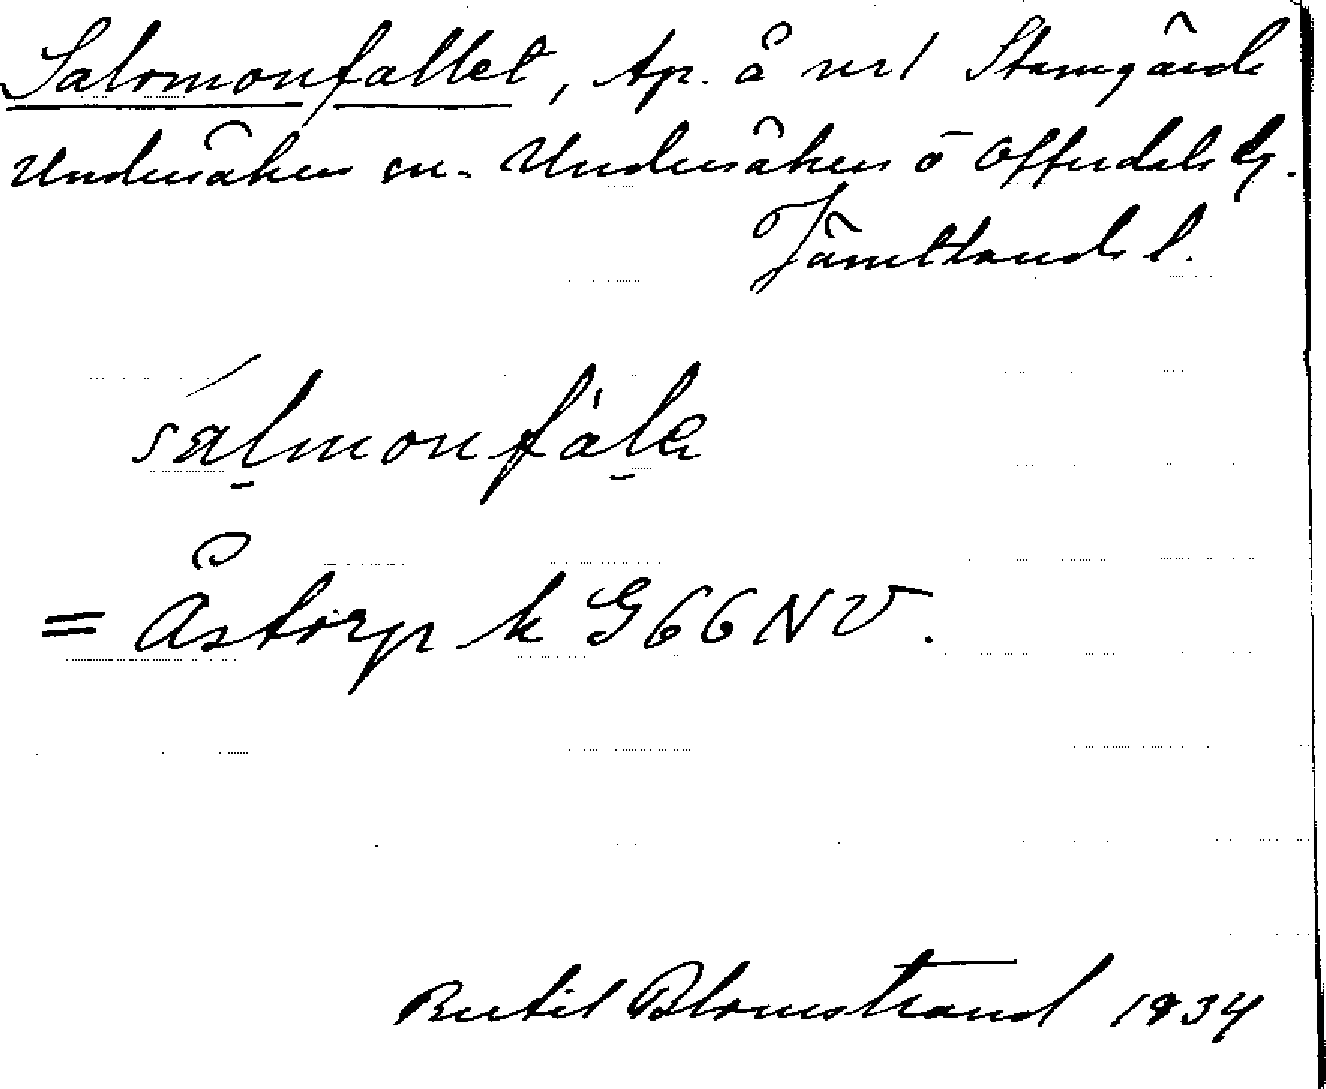 Salomonfallet, tp. å nr 1 Stamgärde
Undersåker sn. Undersåkers o Offerdals tg.
Jämtlands l.
salmonfále
= Åstorp k G66NV.
Bertil Blomstrand 1934